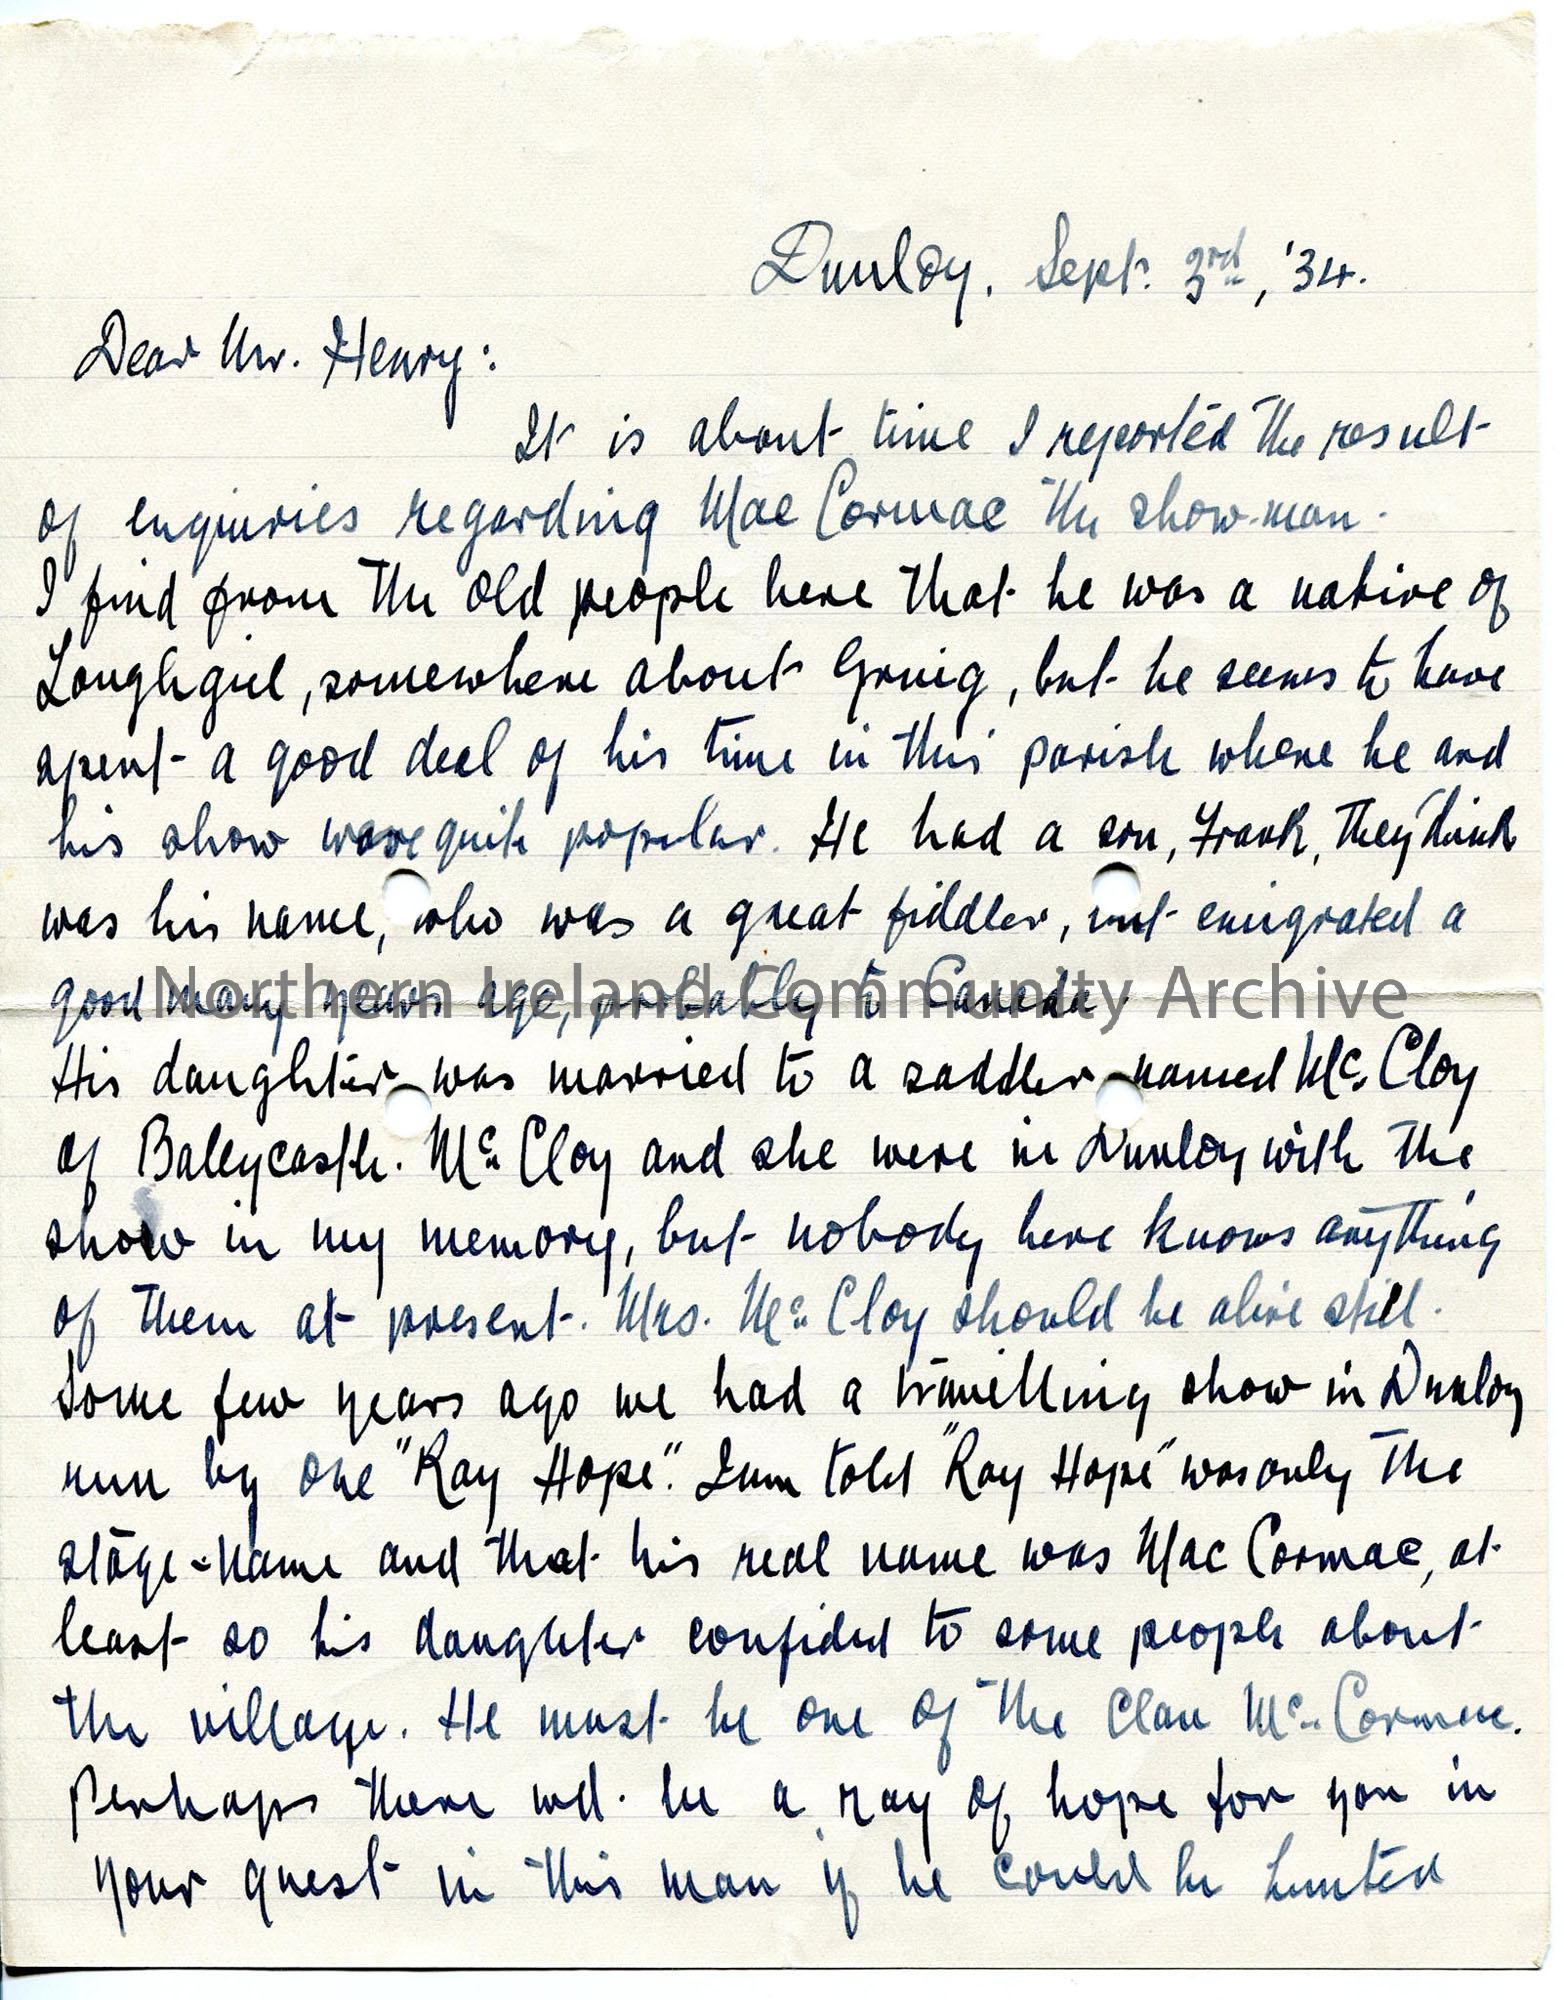 Dunloy. Sept. 3rd, '34.
Dear Mr. Henry:
It is about time I reported the result
of enquiries regarding MacCormac the show-man.
I find from the old people here that he was a native of
Loughgiel, somewhere about Grnig, but he seems to have
spent a good deal of his time in this parish where he and
his show were quite popular. He had a son, Frank, they think
was his name, who was a great fiddler, but emigrated a
good many years ago, probably to Canada.
Northern Ireland Community Archive
His daughter was married to a saddler named Mc. Cloy
of Ballycastle. Mc. Cloy and she were in Dunloy with the
show in my memory, but nobody here knows anything
of them at present. Mrs. Mc. Cloy should be alive still.
Some few years ago we had a travelling show in Dunloy
run by one "Ray Hope". I am told "Ray Hope" was only the
stage-name and that his real name was MacCormac, at
least so his daughter confided to some people about
the village. He must be one of the Clan Mc. Cormac.
Perhaps there wd. be a ray of hope for you in
your quest in this man if he could be hunted